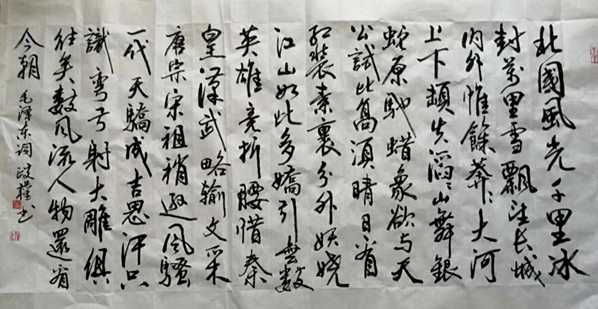 北國風光千里冰
封萬里雪飄望長城
内外惟餘莽〻大河
上下頓失滔〻山舞銀
蛇原馳蜡象欲与天
公試比高須晴日看
紅裝素裹分外妖嬈
江山如此多嬌引無數
英雄竞折腰惜秦
皇漢武略輸文采
唐宗宋祖稍遜風騷
一代天驕成吉思汗只
識彎弓射大雕俱
往矣數風流人物還看
今朝 毛澤東詞